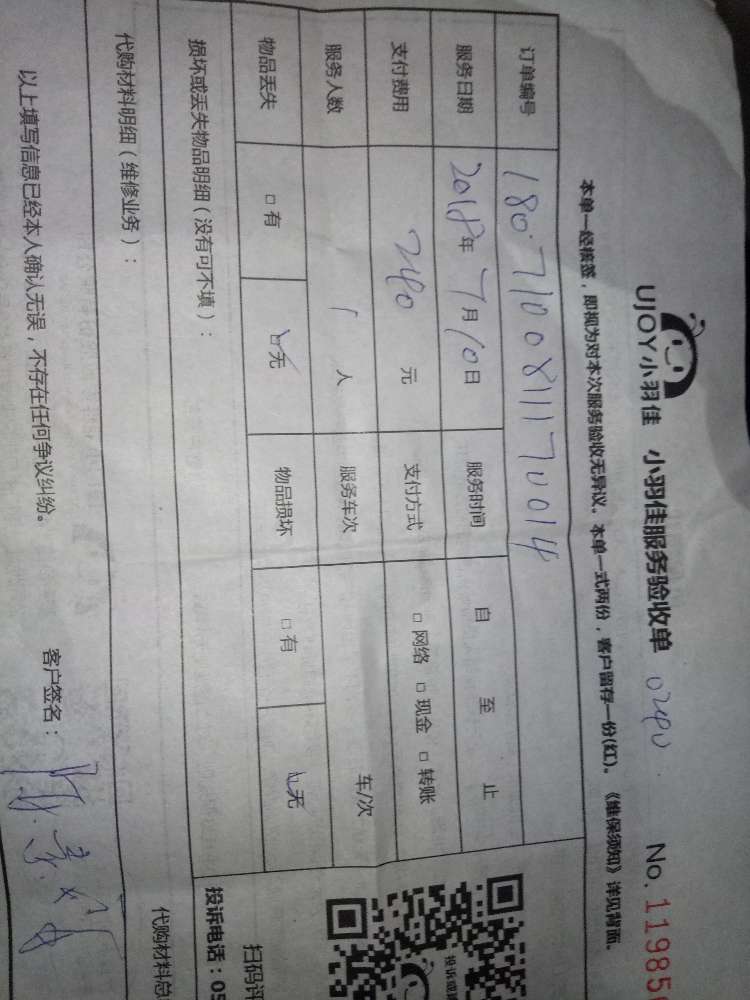 UJOY小羽佳 小羽佳服务验收单 0240 No.11985
本单一经核签，即视为对本次服务验收无异议。本单一式两份，客户留存一份(红)。《维保须知》详见背面。
订单编号 1807100811170014
服务日期 2018年7月10日 服务时间 自 至 止
支付费用 240元 支付方式 □网络 □现金 □转账
服务人数 1人 服务车次 车/次
物品丢失 □有 ☑无 物品损坏 □有 ☑无
损坏或丢失物品明细（没有可不填）：
代购材料明细（维修业务）：
以上填写信息已经本人确认无误，不存在任何争议纠纷。 客户签名：
投诉或
扫码评
投诉电话：05
代购材料总